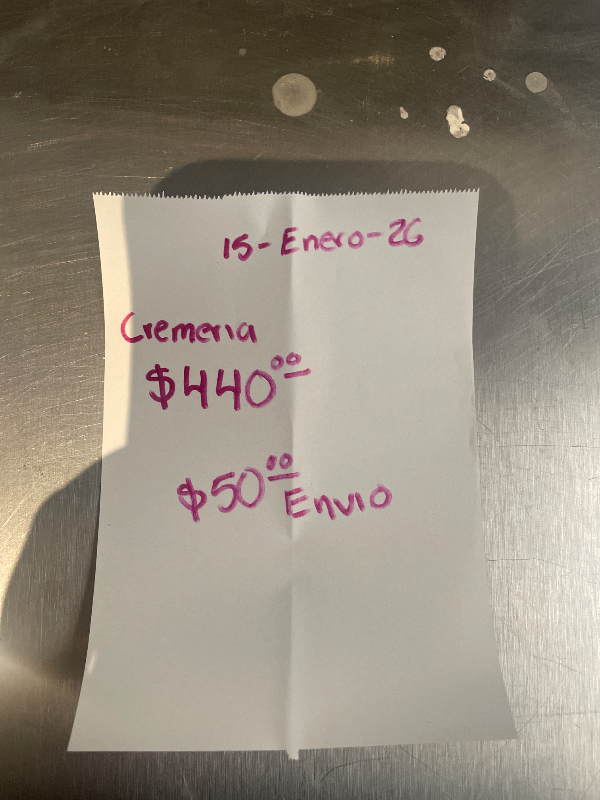 15-Enero-26
Cremeria
$440.00
$50.00 Envio